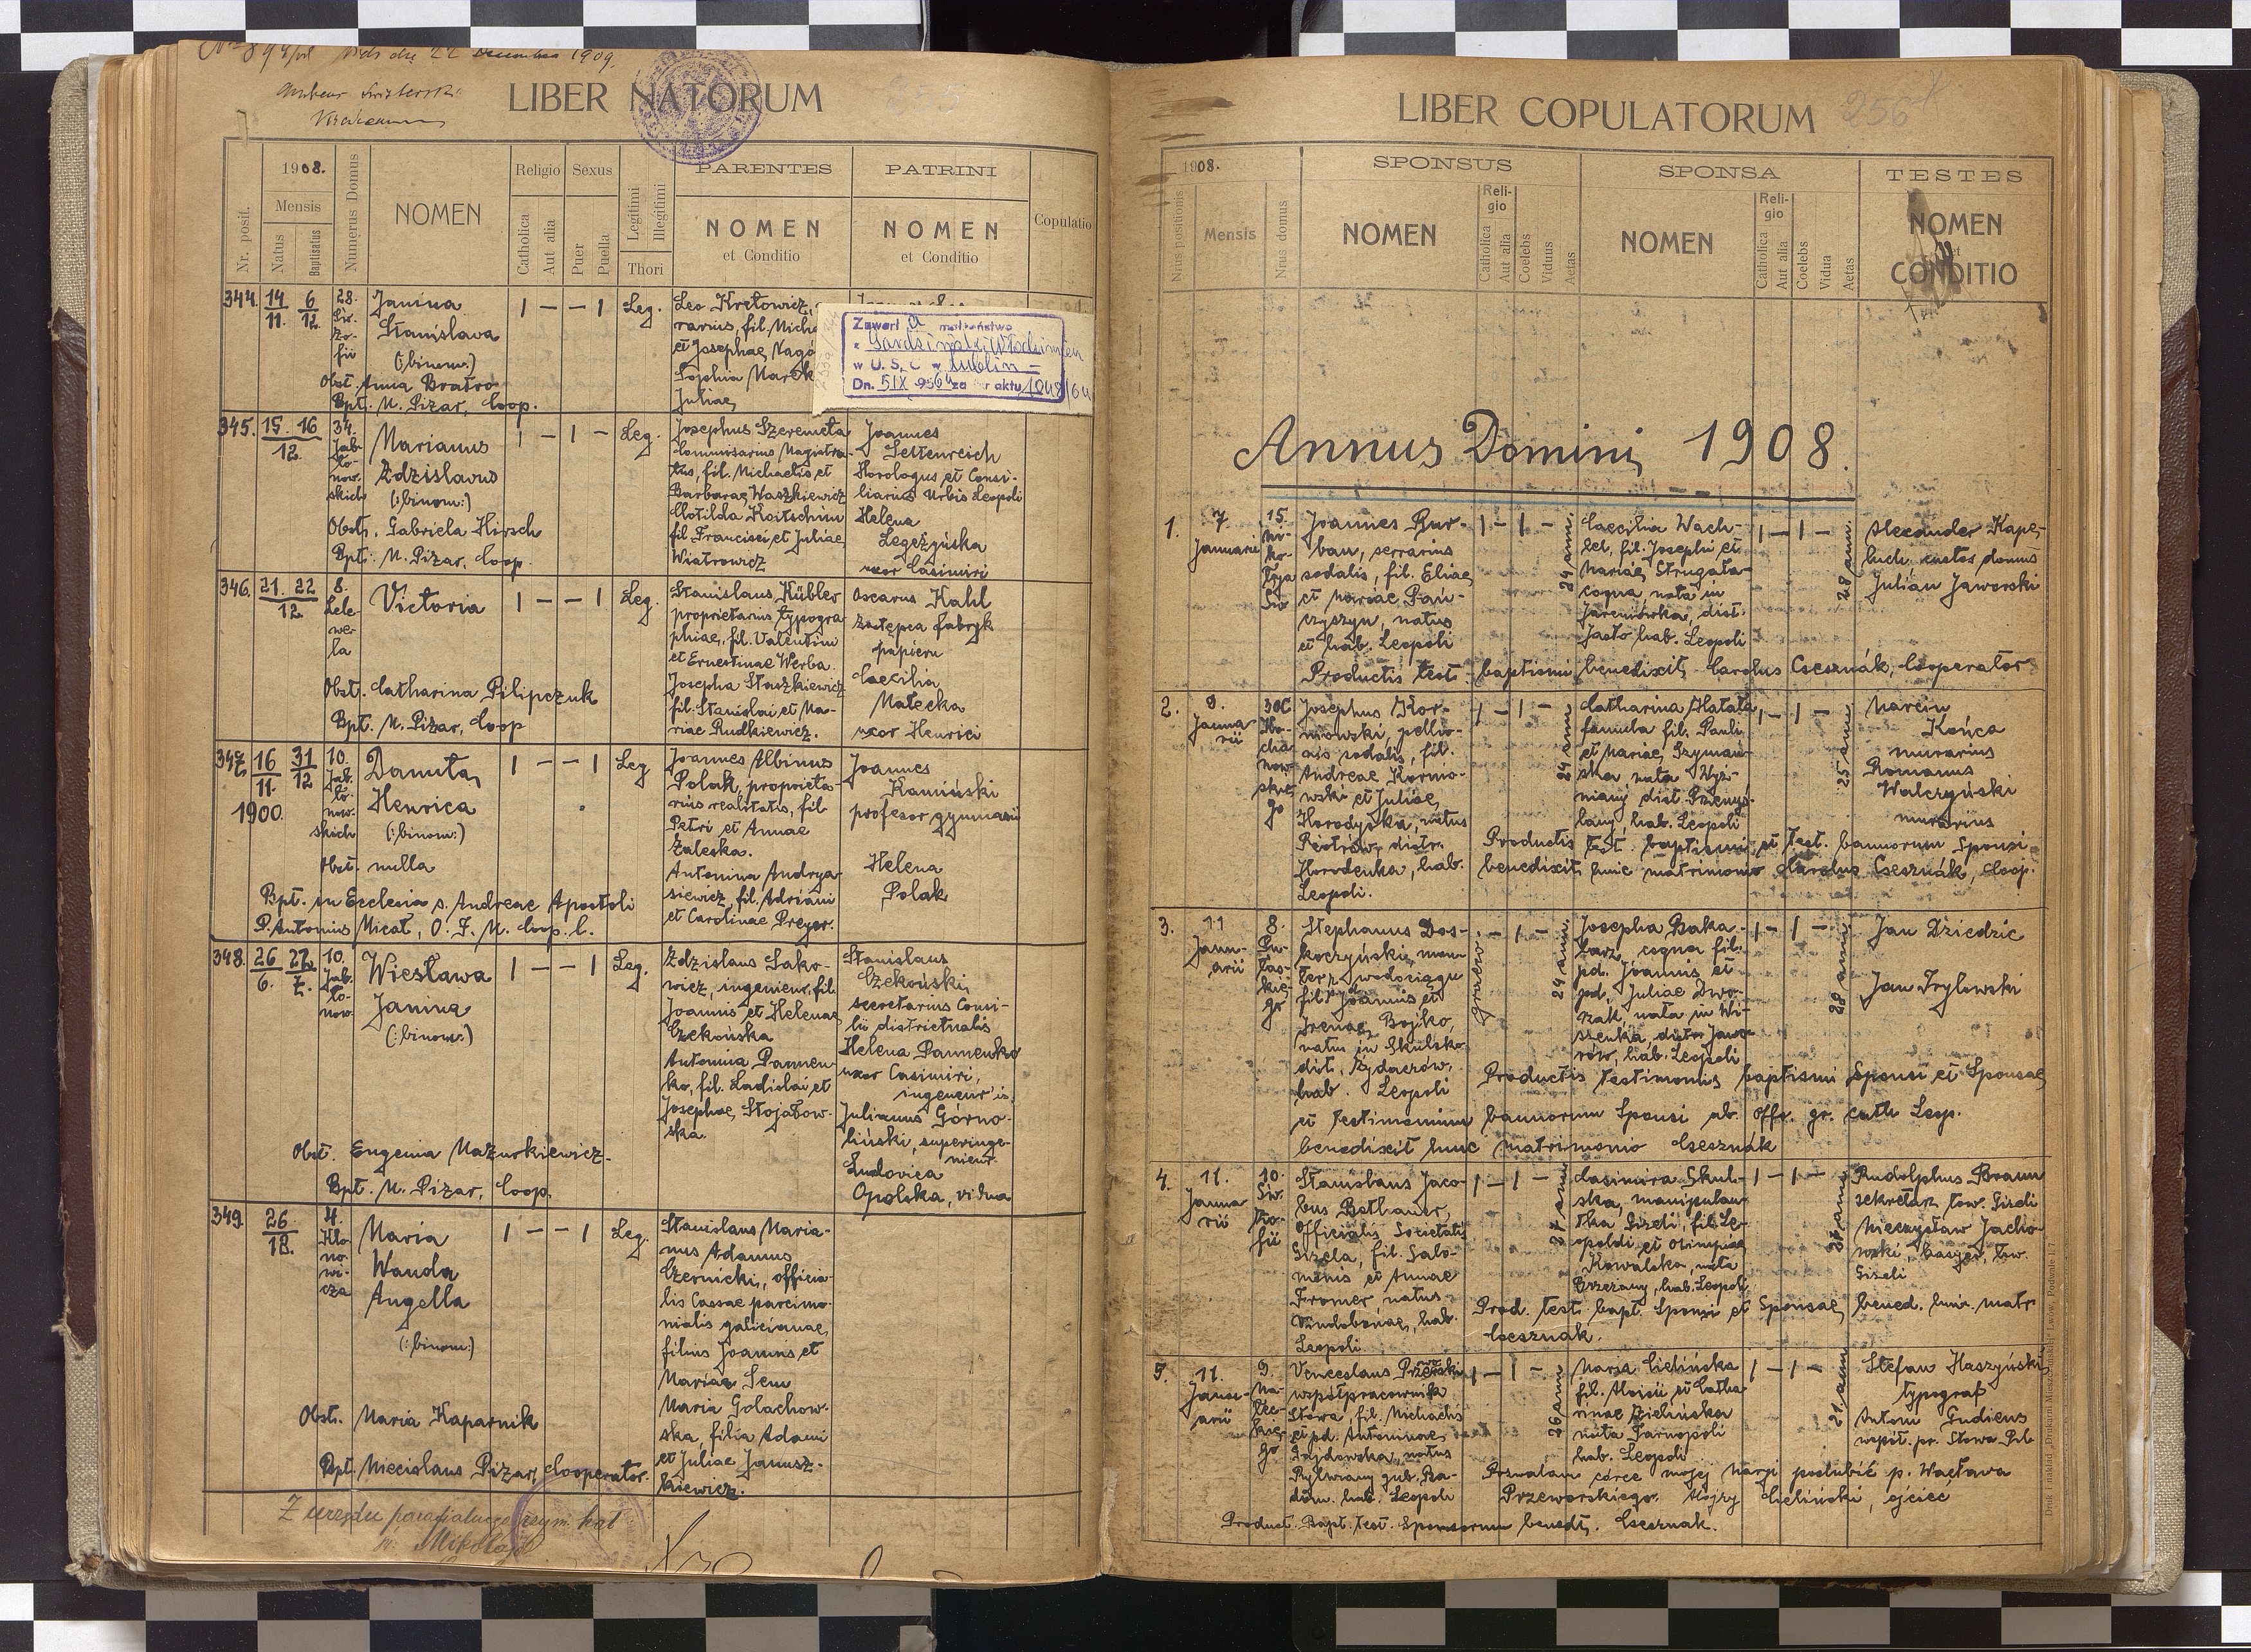 1909.
LIBER NATORUM
1908.
Nr. posit.
Mensis
Natus
Baptisatus
Numerus Domus
NOMEN
Religio
Catholica
Aut alia
Sexus
Puer
Puella
Legitimi
Illegitimi
Thori
PARENTES
NOMEN
et Conditio
PATRINI
NOMEN
et Conditio
Copulatio
344. 14/11. 6/12.
28.
Św.
Zo-
fii
Janina
Stanislava
(:binom:)
1 — — 1 Leg.
Obst. Anna Bratro
Bpt. M. Pizar, Coop.
Leo Kretowicz,
rarius, fil. Micha
et Josephae Nagó
Sophia Marek
Juliae
Zawarł a małżeństwo
w U.S.C w Lublin
345. 15. 16
12.
34.
Jab-
ło-
now-
skich
Marianus
Zdzislaus
(:binom:)
1 — 1 — Leg.
Obst. Gabriela Hirsch
Bpt. M. Pizar, Coop.
Josephus Szeremeta
Commissarius Magistra-
tus, fil. Michaelis et
Barbarae Waszkiewicz
Clotilda Koitschim
fil Francisci et Juliae
Wiatrowicz
Joannes
Settenreich
Horologus et Consi-
liarius Urbis Leopoli
Helena
Legeżyńska
uxor Casimiri
346. 21. 22
12
8.
Lele-
we-
la
Victoria
1 — — 1 Leg.
Obst. Catharina Pilipczuk
Bpt. M. Pizar, Coop
Stanislaus Kübler
proprietarius typogra
phiae, fil. Valentini
et Ernestinae Werba.
Josepha Staszkiewicz
fil. Stanislai et Ma-
riae Rudkiewicz.
Oscarus Kahl
zastępca fabryk
papieru
Caecilia
Małecka
uxor Henrici
347. 16/11. 31/12
1900.
10.
Jab.
ło-
now-
skich
Danuta
Henrica
(:binom:)
1 — — 1 Leg
Obst. nulla
Bpt. in Ecclesia s. Andreae Apostoli
P. Antonius Micał, O. F. M. Coop. l.
Joannes Albinus
Polak, proprieta-
rius realitatis, fil
Petri et Annae
Zaleska.
Antonina Andrya-
siewicz, fil. Adriani
et Carolinae Preyer.
Joannes
Kamiński
profesor gymnasii
Helena
Polak
348. 26/6. 27/7.
10.
Jab.
ło-
now
Wiesława
Janina
(:binom:)
1 — — 1 Leg.
Obst. Eugenia Mazurkiewicz.
Bpt. M. Pizar, Coop.
Zdzislaus Sako-
wicz, ingenieur, fil.
Joannis et Helenae
Czekońska
Antonina Pannen-
ko, fil. Ladislai et
Josephae Stojałow-
ska.
Stanislaus
Czekoński,
secretarius Consi-
lii districtualis
Helena Pannenko
uxor Casimiri,
ingeneur'is.
Julianus Górno-
liński, superinge-
nieur.
Ludovica
Opolska, vidua
349. 26
12.
4.
Klo
no-
wi-
cza
Maria
Wanda
Angella
(:binom:)
1 — — 1 Leg.
Obst. Maria Kaparnik
Bpt. Miecislaus Pizar, Cooperator.
Stanislaus Maria-
nus Adamus
Czernicki, officia-
lis Cassae parcimo-
nialis galicianae,
filius Joannis et
Mariae Sem
Maria Golachow-
ska, filia Adami
et Juliae Janusz-
kiewicz.
Z urzędu parafialnego rzym. kat
św. Mikołaja
LIBER COPULATORUM 256
1908.
Nrus positionis
Mensis
Nrus domus
SPONSUS
NOMEN
Religio
Catholica
Aut alia
Coelebs
Viduus
Aetas
SPONSA
NOMEN
Religio
Catholica
Aut alia
Coelebs
Vidua
Aetas
TESTES
NOMEN
et
CONDITIO
Annus Domini 1908.
1. 7
Januarii
15.
Mi-
ko-
łaja
Św
Joannes Bur-
ban, serrarius
sodalis, fil. Eliae
et Mariae Pań-
czyszyn, natus
et hab. Leopoli
1 — 1 —
24 ann.
Caecilia Wach-
tel, fil. Josephi et
Mariae Strugała-
cogna, nata in
Jareniówka, dist.
Jasło hab. Leopoli
1 — 1 —
28 ann
Alexander Kape-
luch, custos domus
Julian Jaworski
Productis test. baptismi benedixit Carolus Csesznák, Cooperator
2. 9.
Janua
rii
30C
Ko-
cha
now
skie
go
Josephus Kor-
niowski, pellio-
nis sodalis, fil.
Andreae Kornio-
wski et Juliae
Horodyska, natus
Piotrów, distr.
Horodenka, hab.
Leopoli.
1 — 1 —
24 ann
Catharina Hałata
famula fil. Pauli
et Mariae Szymań-
ska nata Wyż-
niany dist. Przemyś-
lany, hab. Leopoli
1 — 1 —
25 ann
Marcin
Końca
murarius
Romanus
Walczyński
murarius
Productis test. baptismi et test. bannorum Sponsi
benedixit huic matrimonio Carolus Csesznák, Coop.
3. 11
Janu-
arii
8.
Stephanus Dos-
koczyński, mon-
ter z wodociągu
fil. Joannis et
Irenae Bojko,
natus in Skulsko
dist. Żydaczów,
hab. Leopoli
graeco.
— 1 —
24 ann.
Josepha Baka-
larz, cogna fil.
pd. Joannis et
pd. Juliae Dwo-
rzak, nata in Wi-
szenka, distr Jawo-
rów, hab. Leopoli
1 — 1 —
28 ann
Jan Dziedzic
Jan Trylowski
Productis testimoniis baptismi Sponsi et Sponsae
et testimonium bannorum Sponsi ab. offo. gr. cath Leop.
benedixit huic matrimonio Csesznák
4. 11.
Janua
rii
10.
Św.
Zo-
fii
Stanislaus Jaco-
bus Bethauer,
officialis Societatis
Gizela, fil. Salo-
monis et Annae
Fromer, natus
Vindobonae, hab.
Leopoli
1 — 1 —
Casimira Skul-
ska, manipulan-
tka Gizeli, fil. Le-
opoldi et Olimpiae
Kowalska, nata
Brzeżany, hab. Leopoli
1 — 1 —
Rudolphus Braun
sekretarz tow. Gizeli
Mieczysław Jacho-
wski, kasyer, tow.
Gizeli
Prod. test. bapt. Sponsi et Sponsae, bened. huic. matr
Csesznák.
5. 11.
Janu-
arii
9.
Ma-
łec-
kie-
go
Venceslaus
współpracownik
Słowa, fil. Michaelis
et pd. Antoninae
Gajdowska, natus
gub. Ra-
dom. hab. Leopoli
1 — 1 —
26 ann
Maria Cielińska
fil. Aloisii et Catha
rinae Zielińska
nata Tarnopoli
hab. Leopoli
1 — 1 —
21. ann
Stefan Haszyński
typograf
Antoni Gudiens
współ. pr. Słowa Pol.
Pozwalam córce mojej Maryi poślubić p. Wacława
Przeworskiego. Alojzy Cieliński, ojciec
Product. Bapt. test. Sponsorum benedt. Csesznak.